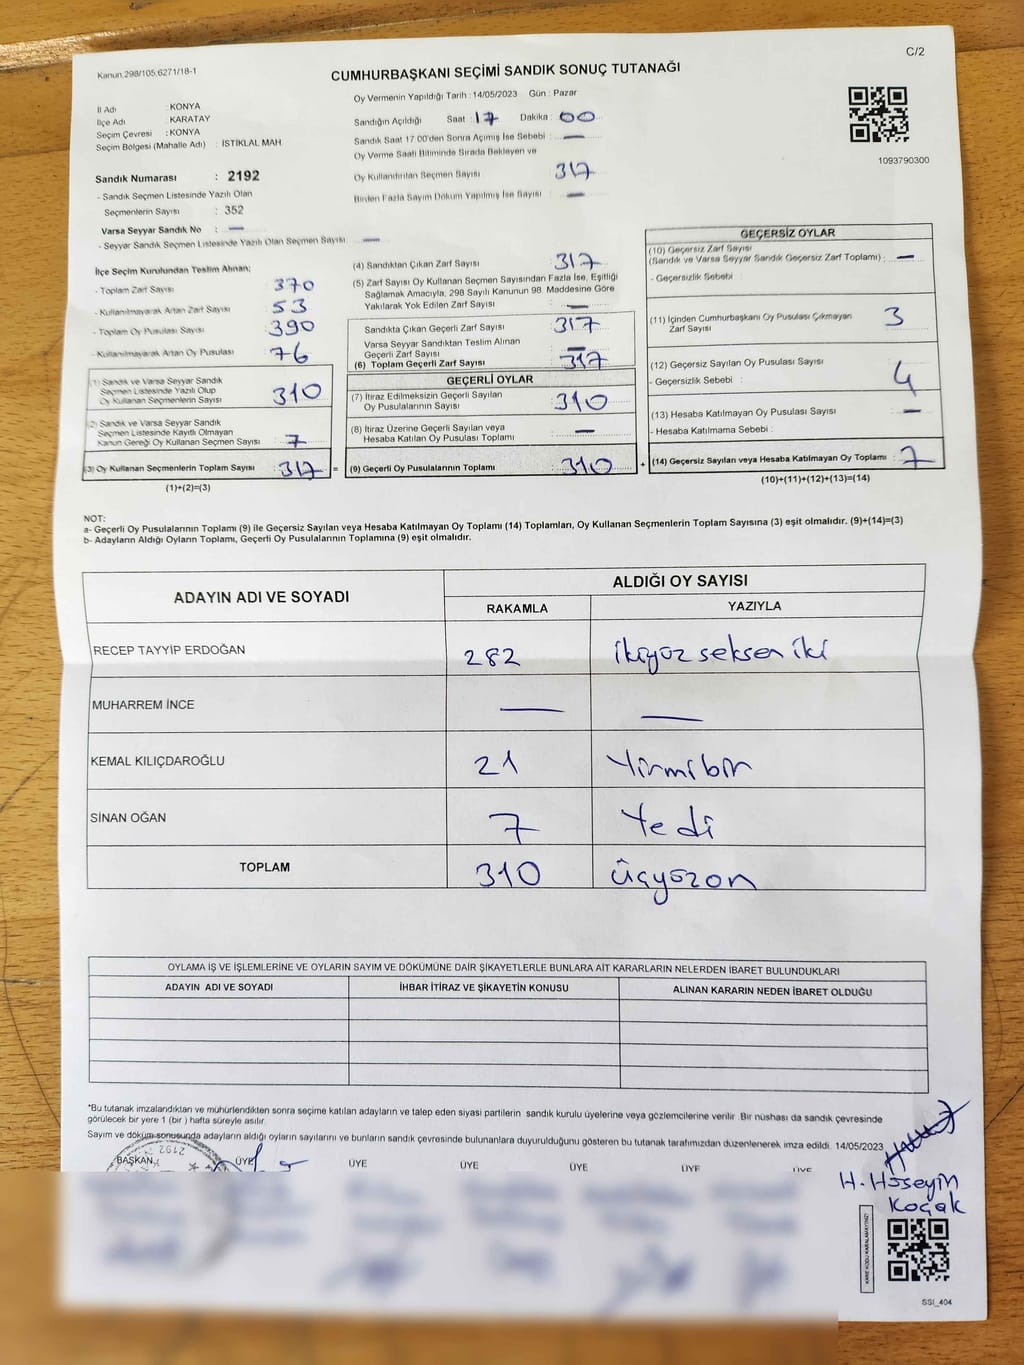 C/2
Kanun,298/105;6271/18-1
CUMHURBAŞKANI SEÇİMİ SANDIK SONUÇ TUTANAĞI
Oy Vermenin Yapıldığı Tarih : 14/05/2023 Gün : Pazar
İl Adı : KONYA
İlçe Adı : KARATAY
Seçim Çevresi : KONYA
Seçim Bölgesi (Mahalle Adı) : İSTİKLAL MAH
Sandık Numarası : 2192
- Sandık Seçmen Listesinde Yazılı Olan
Seçmenlerin Sayısı : 352
Varsa Seyyar Sandık No : —
- Seyyar Sandık Seçmen Listesinde Yazılı Olan Seçmen Sayısı : —
Sandığın Açıldığı Saat : 17 Dakika : 00
Sandık Saat 17:00'den Sonra Açımış İse Sebebi : —
Oy Verme Saati Bitiminde Sırada Bekleyen ve
Oy Kullandırılan Seçmen Sayısı : 317
Birden Fazla Sayım Döküm Yapılmış İse Sayısı : —
1093790300
İlçe Seçim Kurulundan Teslim Alınan;
- Toplam Zarf Sayısı : 370
- Kullanılmayarak Artan Zarf Sayısı : 53
- Toplam Oy Pusulası Sayısı : 390
- Kullanılmayarak Artan Oy Pusulası : 76
(1) Sandık ve Varsa Seyyar Sandık
Seçmen Listesinde Yazılı Olup
Oy Kullanan Seçmenlerin Sayısı : 310
(2) Sandık ve Varsa Seyyar Sandık
Seçmen Listesinde Kayıtlı Olmayan
Kanun Gereği Oy Kullanan Seçmen Sayısı : 7
(3) Oy Kullanan Seçmenlerin Toplam Sayısı : 317 =
(1)+(2)=(3)
(4) Sandıktan Çıkan Zarf Sayısı : 317
(5) Zarf Sayısı Oy Kullanan Seçmen Sayısından Fazla İse, Eşitliği
Sağlamak Amacıyla, 298 Sayılı Kanunun 98. Maddesine Göre
Yakılarak Yok Edilen Zarf Sayısı : —
Sandıkta Çıkan Geçerli Zarf Sayısı : 317
Varsa Seyyar Sandıktan Teslim Alınan
Geçerli Zarf Sayısı : —
(6) Toplam Geçerli Zarf Sayısı : 317
GEÇERLİ OYLAR
(7) İtiraz Edilmeksizin Geçerli Sayılan
Oy Pusulalarının Sayısı : 310
(8) İtiraz Üzerine Geçerli Sayılan veya
Hesaba Katılan Oy Pusulası Toplamı : —
(9) Geçerli Oy Pusulalarının Toplamı : 310 +
GEÇERSİZ OYLAR
(10) Geçersiz Zarf Sayısı
(Sandık ve Varsa Seyyar Sandık Geçersiz Zarf Toplamı) : —
- Geçersizlik Sebebi :
(11) İçinden Cumhurbaşkanı Oy Pusulası Çıkmayan
Zarf Sayısı : 3
(12) Geçersiz Sayılan Oy Pusulası Sayısı : 4
- Geçersizlik Sebebi :
(13) Hesaba Katılmayan Oy Pusulası Sayısı : —
- Hesaba Katılmama Sebebi :
(14) Geçersiz Sayılan veya Hesaba Katılmayan Oy Toplamı : 7
(10)+(11)+(12)+(13)=(14)
NOT:
a- Geçerli Oy Pusulalarının Toplamı (9) ile Geçersiz Sayılan veya Hesaba Katılmayan Oy Toplamı (14) Toplamları, Oy Kullanan Seçmenlerin Toplam Sayısına (3) eşit olmalıdır. (9)+(14)=(3)
b- Adayların Aldığı Oyların Toplamı, Geçerli Oy Pusulalarının Toplamına (9) eşit olmalıdır.
ADAYIN ADI VE SOYADI ALDIĞI OY SAYISI
RAKAMLA YAZIYLA
RECEP TAYYİP ERDOĞAN 282 ikiyüz seksen iki
MUHARREM İNCE — —
KEMAL KILIÇDAROĞLU 21 Yirmibir
SİNAN OĞAN 7 Yedi
TOPLAM 310 üçyüzon
OYLAMA İŞ VE İŞLEMLERİNE VE OYLARIN SAYIM VE DÖKÜMÜNE DAİR ŞİKAYETLERLE BUNLARA AİT KARARLARIN NELERDEN İBARET BULUNDUKLARI
ADAYIN ADI VE SOYADI İHBAR İTİRAZ VE ŞİKAYETİN KONUSU ALINAN KARARIN NEDEN İBARET OLDUĞU
*Bu tutanak imzalandıktan ve mühürlendikten sonra seçime katılan adayların ve talep eden siyasi partilerin sandık kurulu üyelerine veya gözlemcilerine verilir. Bir nüshası da sandık çevresinde
görülecek bir yere 1 (bir ) hafta süreyle asılır.
Sayım ve döküm sonusunda adayların aldığı oyların sayılarını ve bunların sandık çevresinde bulunanlara duyurulduğunu gösteren bu tutanak tarafımızdan düzenlenerek imza edildi. 14/05/2023
2192
BAŞKAN ÜYE ÜYE ÜYE ÜYE ÜYE ÜYE
H. Hüseyin
Koçak
KARE KODU KARALAMAYINIZ!
SSİ_404